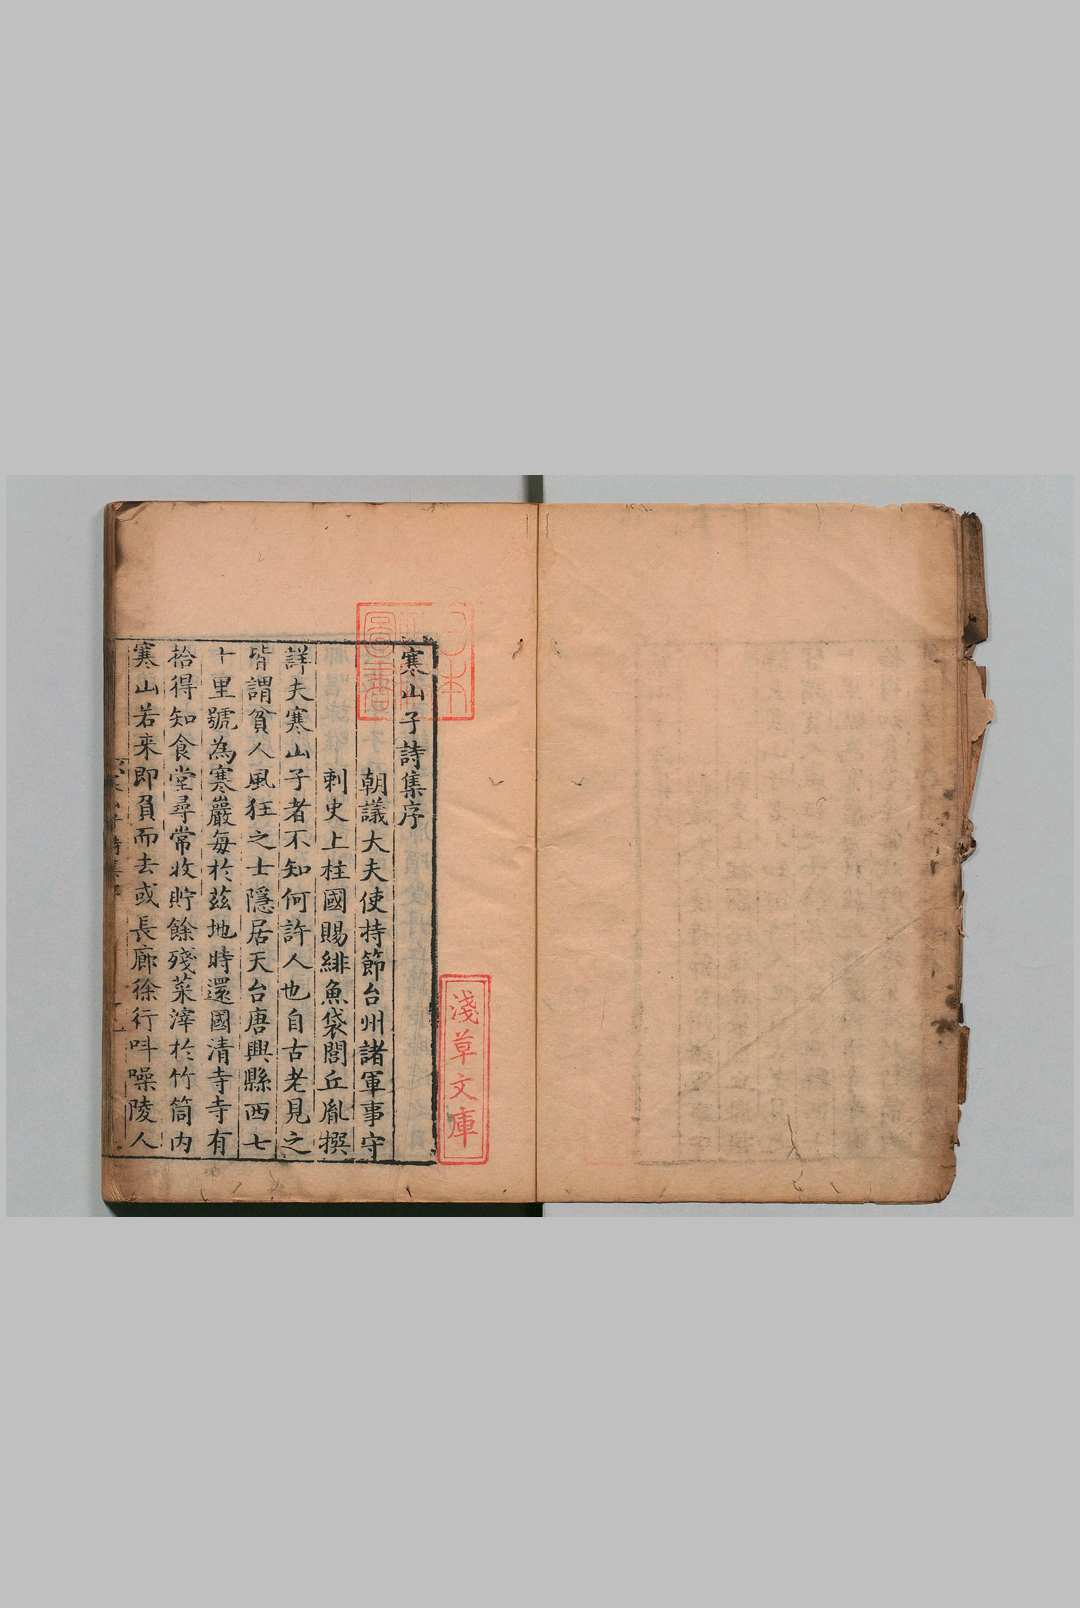 寒山子詩集序
朝議大夫使持節台州諸軍事守
刺史上柱國賜緋魚袋閭丘胤撰
詳夫寒山子者不知何許人也自古老見之
皆謂貧人風狂之士隱居天台唐興縣西七
十里號為寒巖每於玆地時還國清寺寺有
拾得知食堂尋常收貯餘殘菜滓於竹筒内
寒山若來即負而去或長廊徐行呌噪陵人
淺草文庫